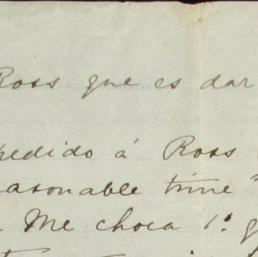 Ross que es dar
pedido á Ross
reasonable time"
. Me choca 1º